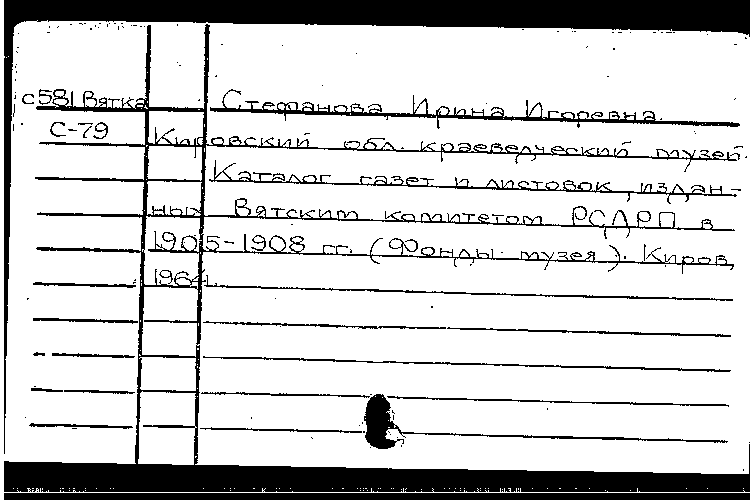 с581 Вятка Стефанова, Ирина Игоревна.
С-79 Кировский обл. краеведческий музей.
Каталог газет и листовок, издан-
ных Вятским комитетом РСДРП в
1905-1908 гг. (Фонды музея). Киров,
1964.